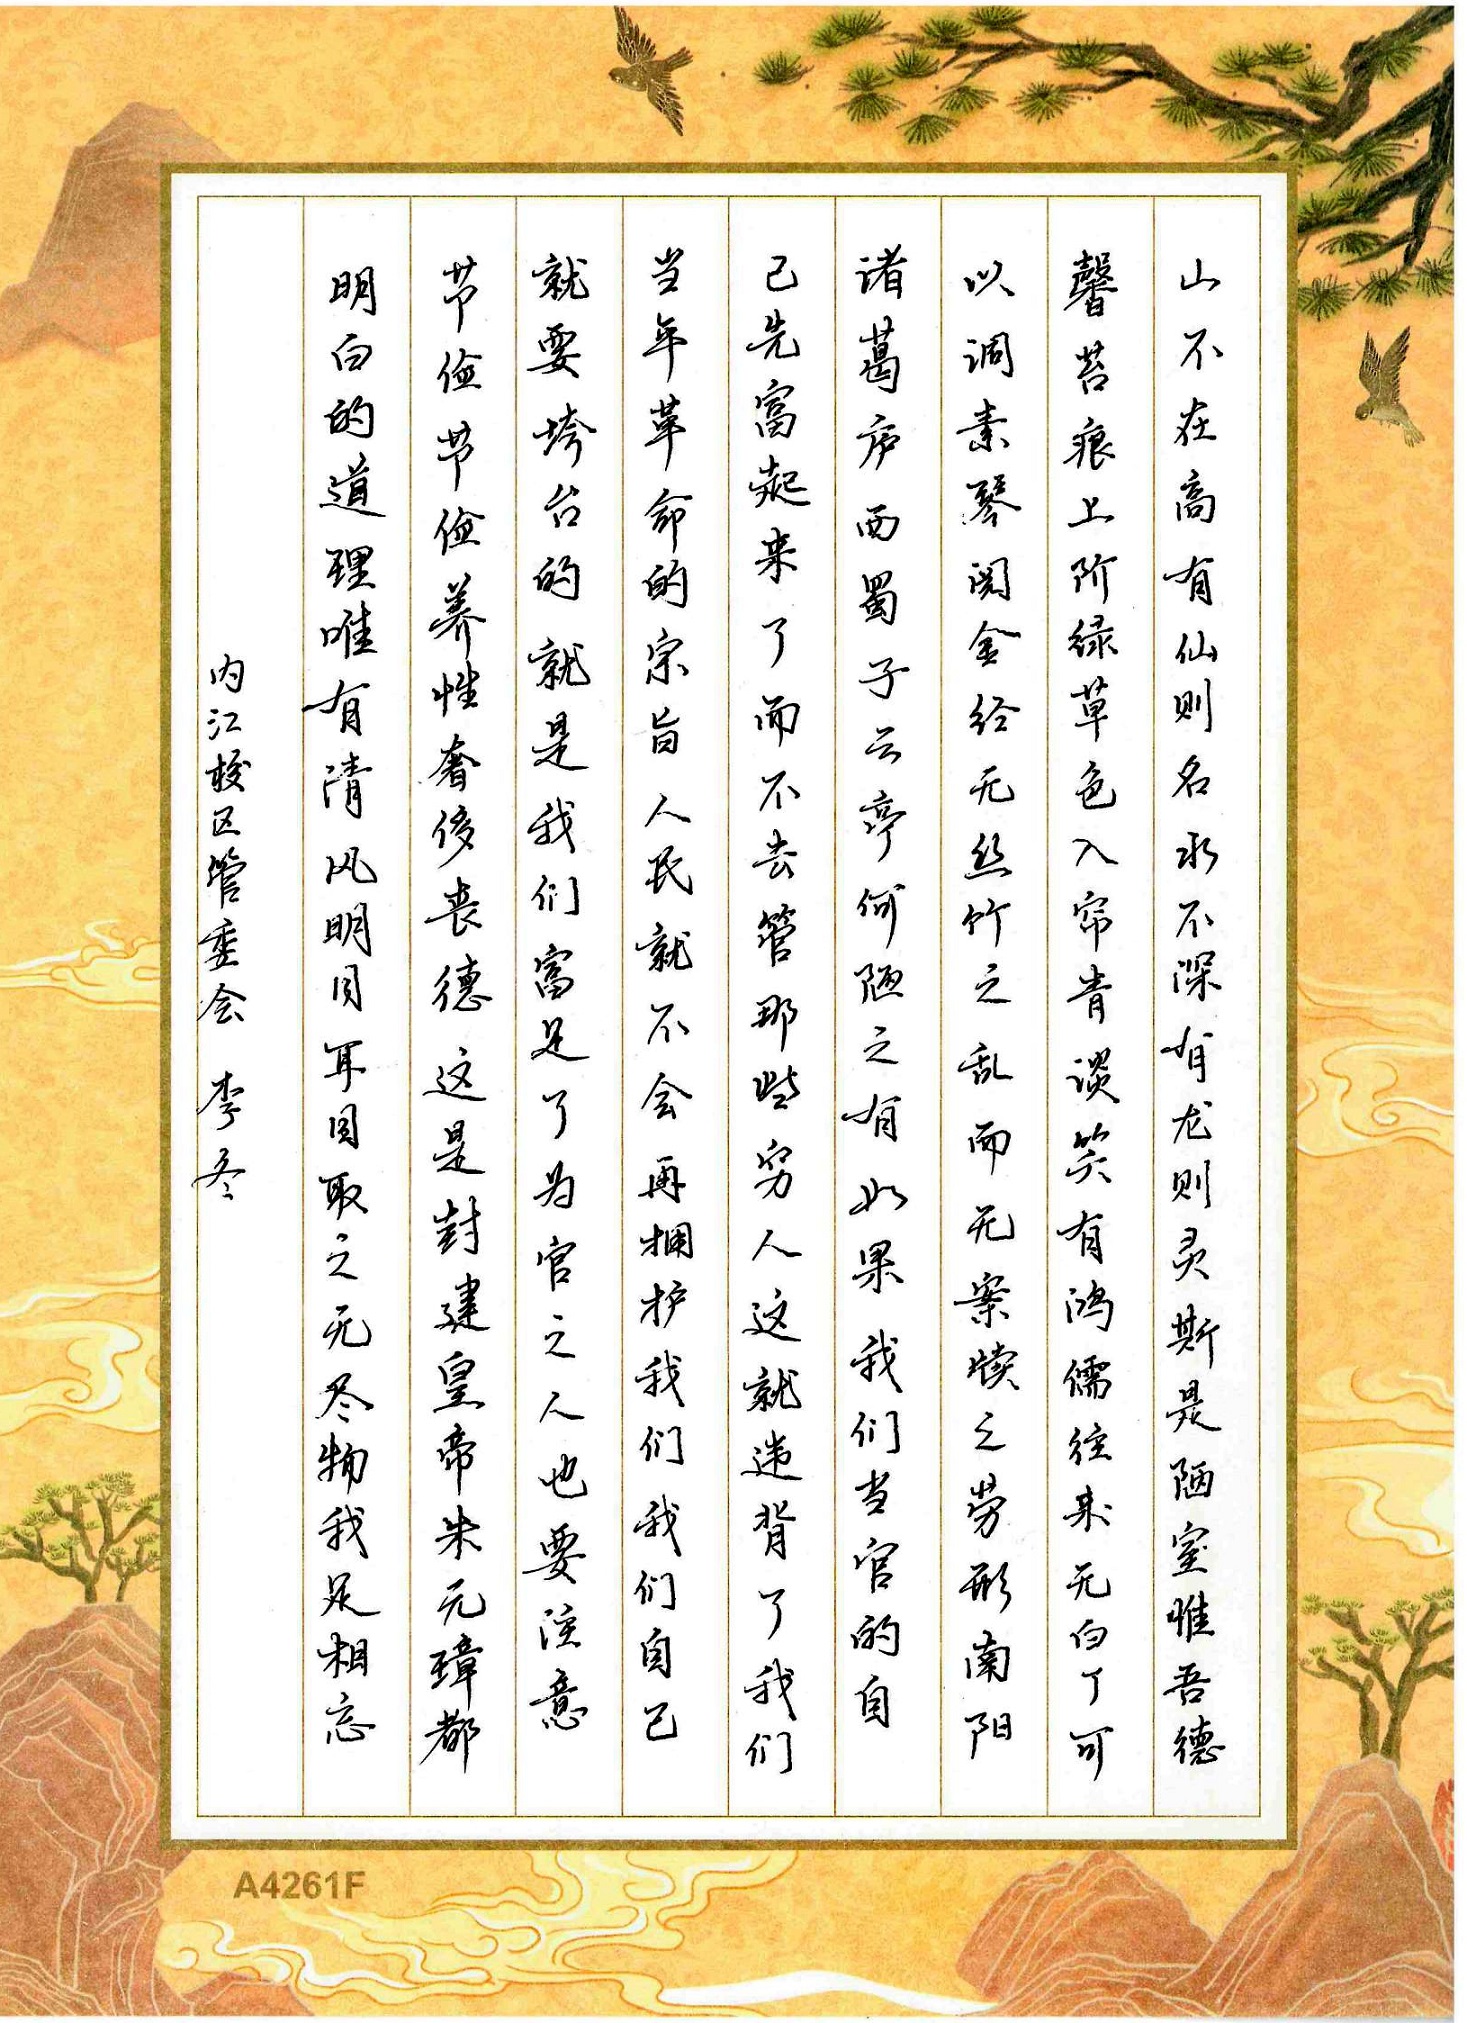 山不在高有仙则名水不深有龙则灵斯是陋室惟吾德
馨苔痕上阶绿草色入帘青谈笑有鸿儒往来无白丁可
以调素琴阅金经无丝竹之乱耳无案牍之劳形南阳
诸葛庐西蜀子云亭何陋之有如果我们当官的自
己先富起来了而不去管那些穷人这就违背了我们
当年革命的宗旨人民就不会再拥护我们我们自己
就要垮台的就是我们富足了为官之人也要注意
节俭节俭养性奢侈丧德这是封建皇帝朱元璋都
明白的道理唯有清风明月耳目取之无尽物我足相忘
内江校区管委会 李冬
A4261F